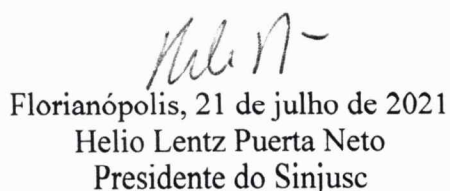 Florianópolis, 21 de julho de 2021
Helio Lentz Puerta Neto
Presidente do Sinjusc